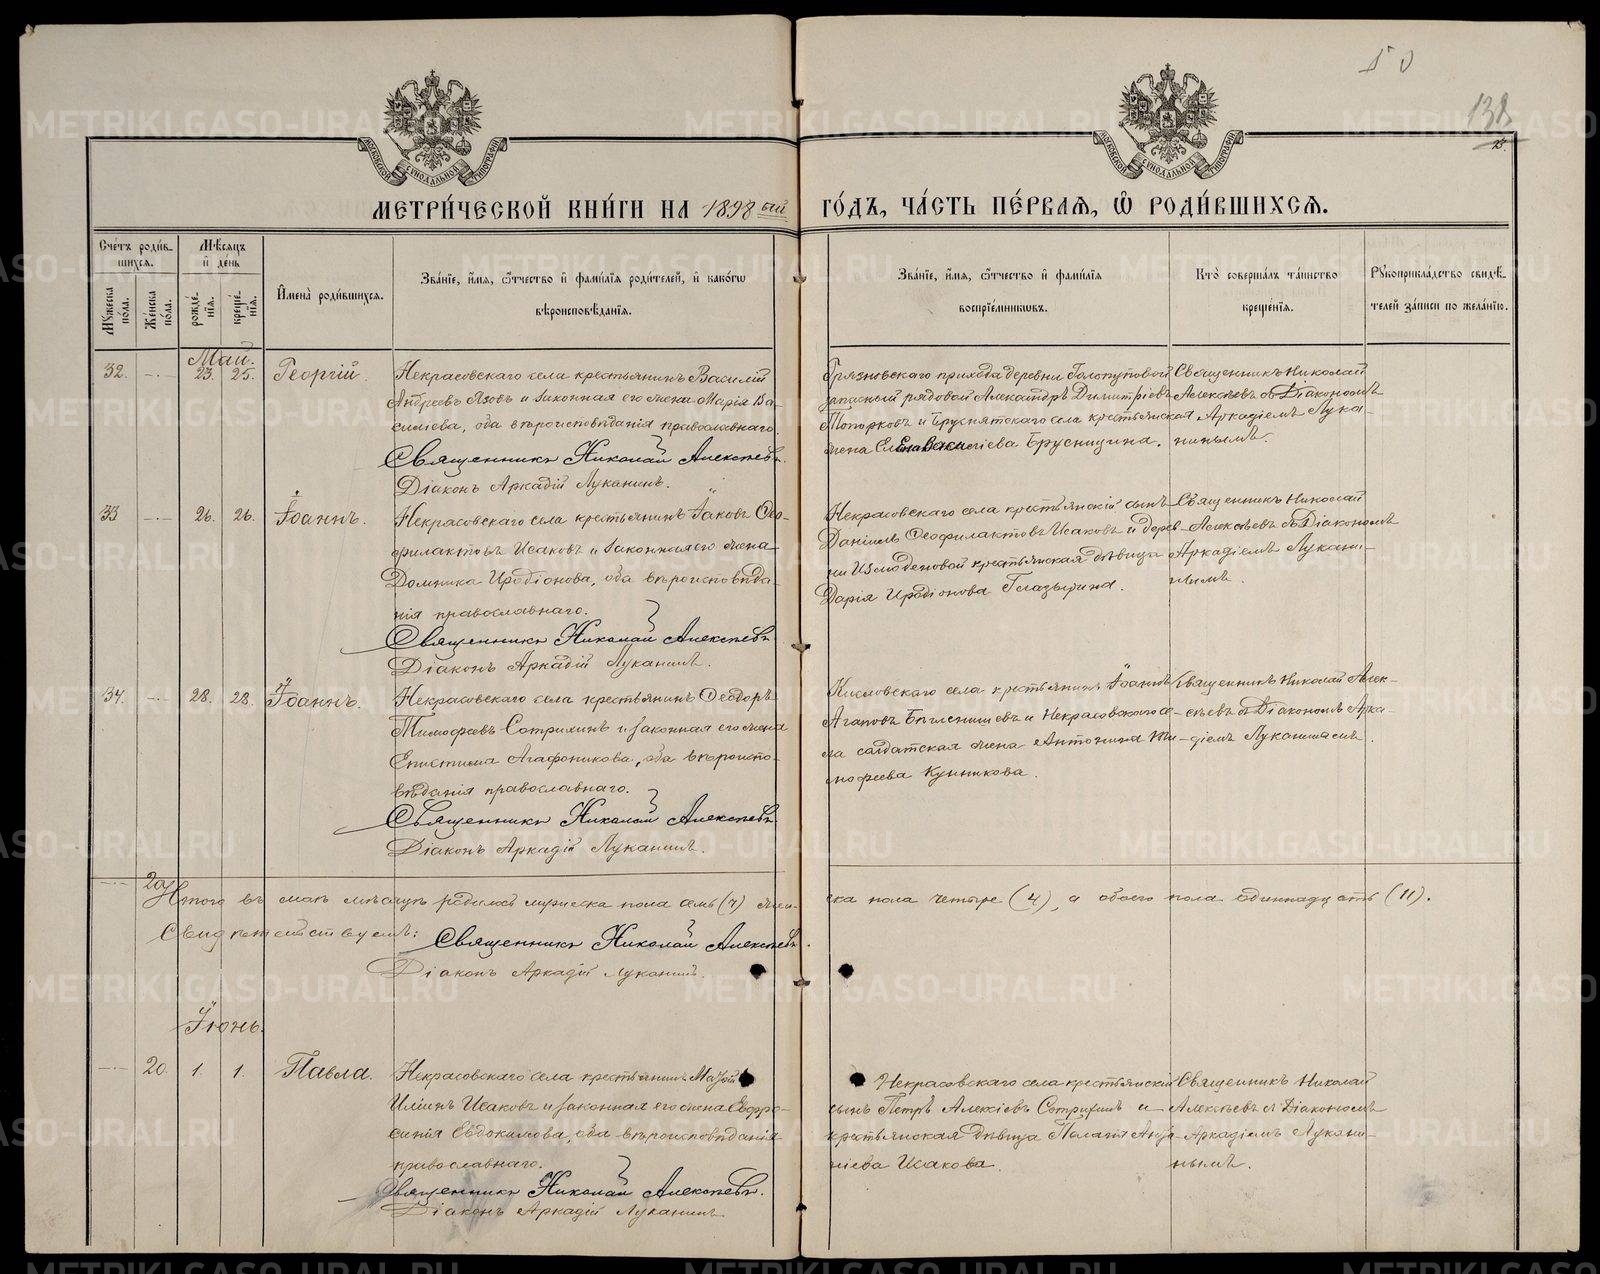 50
138
МЕТРИ́ЧЕСКОЙ КНИ́ГИ НА 1898 ый ГО́ДЪ, ЧА́СТЬ ПЕ́РВАѦ, Ѽ РОДИ́ВШИХСѦ.
МОСКОВСКОЙ СѴНОДАЛЬНОЙ ТИПОГРАФІИ
МОСКОВСКОЙ СѴНОДАЛЬНОЙ ТИПОГРАФІИ
Сче́тъ роди́вшихсѧ.
Мѹ́жеска по́ла.
Же́нска по́ла.
Мѣ́сѧцъ и҆ де́нь
рожде́нїѧ.
креще́нїѧ.
И҆мена̀ роди́вшихсѧ.
Зва́нїе, и҆́мѧ, ѻ҆́тчество и҆ фами́лїѧ роди́телей, и҆ како́гѡ
вѣроисповѣ́данїѧ.
Зва́нїе, и҆́мѧ, ѻ҆́тчество и҆ фами́лїѧ
воспрїе́мникѡвъ.
Кто̀ соверша́лъ та́инство
креще́нїѧ.
Рѹкоприкла́дство свидѣ́-
телей за́писи по жела́нїю.
Май.
32. -.- 23. 25. Георгій
Некрасовскаго села крестьянинъ Василій
Андреевъ Язовъ и законная его жена Марія Ва-
силіева, оба вѣроисповѣданія православнаго.
Священникъ Николай Алексѣевъ.
Діаконъ Аркадій Луканинъ.
Грязновскаго прихода деревни Голопуповой
запасный рядовой Александръ Димитріевъ
Топорковъ и Бруснятскаго села крестьянская
жена Елена Василіева Брусницина.
Священникъ Николай
Алексѣевъ съ Діакономъ
Аркадіемъ Лука-
нинымъ.
33 -.- 26. 26. Іоаннъ.
Некрасовскаго села крестьянинъ Іаковъ Ѳео-
филактовъ Исаковъ и законная его жена
Домника Иродіонова, оба вѣроисповѣда-
нія православнаго.
Священникъ Николай Алексѣевъ
Діаконъ Аркадій Луканинъ.
Некрасовскаго села крестьянскій сынъ
Даніилъ Ѳеофилактовъ Исаковъ и дерев-
ни Измоденовой крестьянская дѣвица
Дарія Иродіонова Глазырина.
Священникъ Николай
Алексѣевъ съ Діакономъ
Аркадіемъ Лукани-
нымъ.
34. -.- 28. 28. Іоаннъ.
Некрасовскаго села крестьянинъ Ѳеодоръ
Тимофеевъ Сотрихинъ и законная его жена
Епистимія Агафоникова, оба вѣроиспо-
вѣданія православнаго.
Священникъ Николай Алексѣевъ
Діаконъ Аркадій Луканинъ.
Кисловскаго села крестьянинъ Іоаннъ
Агаповъ и Некрасовскаго се-
ла солдатская жена Антонина Ти-
мофеева Кунникова.
Священникъ Николай Алек-
сѣевъ съ Діакономъ Арка-
діемъ Луканинымъ.
Итого въ маѣ мѣсяцѣ родилось мужеска пола семь (7) жен-
ска пола четыре (4), а обоего пола одиннадцать (11).
Свидѣтельствуемъ: Священникъ Николай Алексѣевъ.
Діаконъ Аркадій Луканинъ.
Іюнь.
-.- 20. 1. 1. Павла.
Некрасовскаго села крестьянинъ
Иліинъ Исаковъ и законная его жена Евфро-
синія Евдокимова, оба вѣроисповѣданія
православнаго.
Священникъ Николай Алексѣевъ.
Діаконъ Аркадій Луканинъ
Некрасовскаго села крестьянскій
сынъ Петръ Алексіевъ Сотрихинъ и
крестьянская дѣвица Пелагія
Исакова.
Священникъ Николай
Алексѣевъ съ Діакономъ
Аркадіемъ Лукани-
нымъ.
METRIKI.GASO-URAL.RU